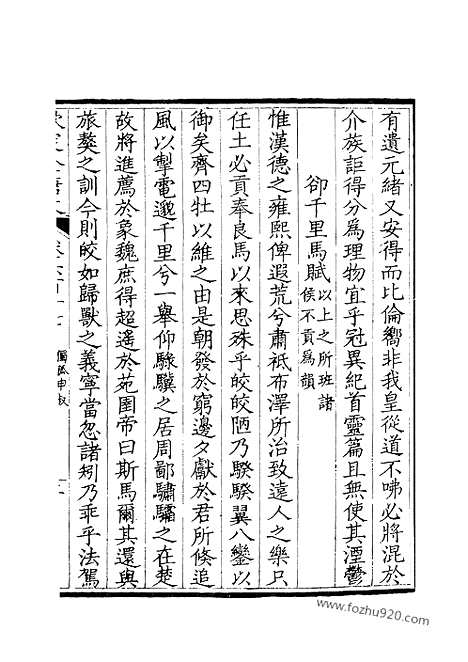 有遺元緒又安得而比倫嚮非我皇從道不咈必將混於
介族詎得分爲理物宜乎冠異紀首靈篇且無使其湮鬱
卻千里馬賦以上之所班諸
侯不貢爲韻
惟漢德之雍熙俾遐荒兮肅祗布澤所洽致遠人之樂只
任土必貢奉良馬以來思殊乎皎皎陋乃騤騤翼八鑾以
御矣齊四牡以維之由是朝發於窮邊夕獻於君所倐追
風以掣電邈千里兮一舉仰騄驥之居周鄙驌驦之在楚
故將進薦於象魏庶得超遙於苑囿帝曰斯馬爾其還與
旅獒之訓今則皎如歸獸之義寧當忽諸矧乃乖乎法駕
獨孤申叔
www.fozhu920.com